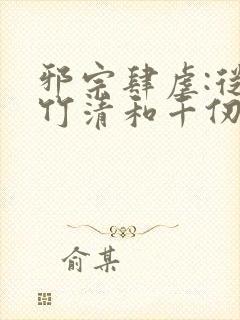 邪宗肆虐:從
竹清和千仞
俞某